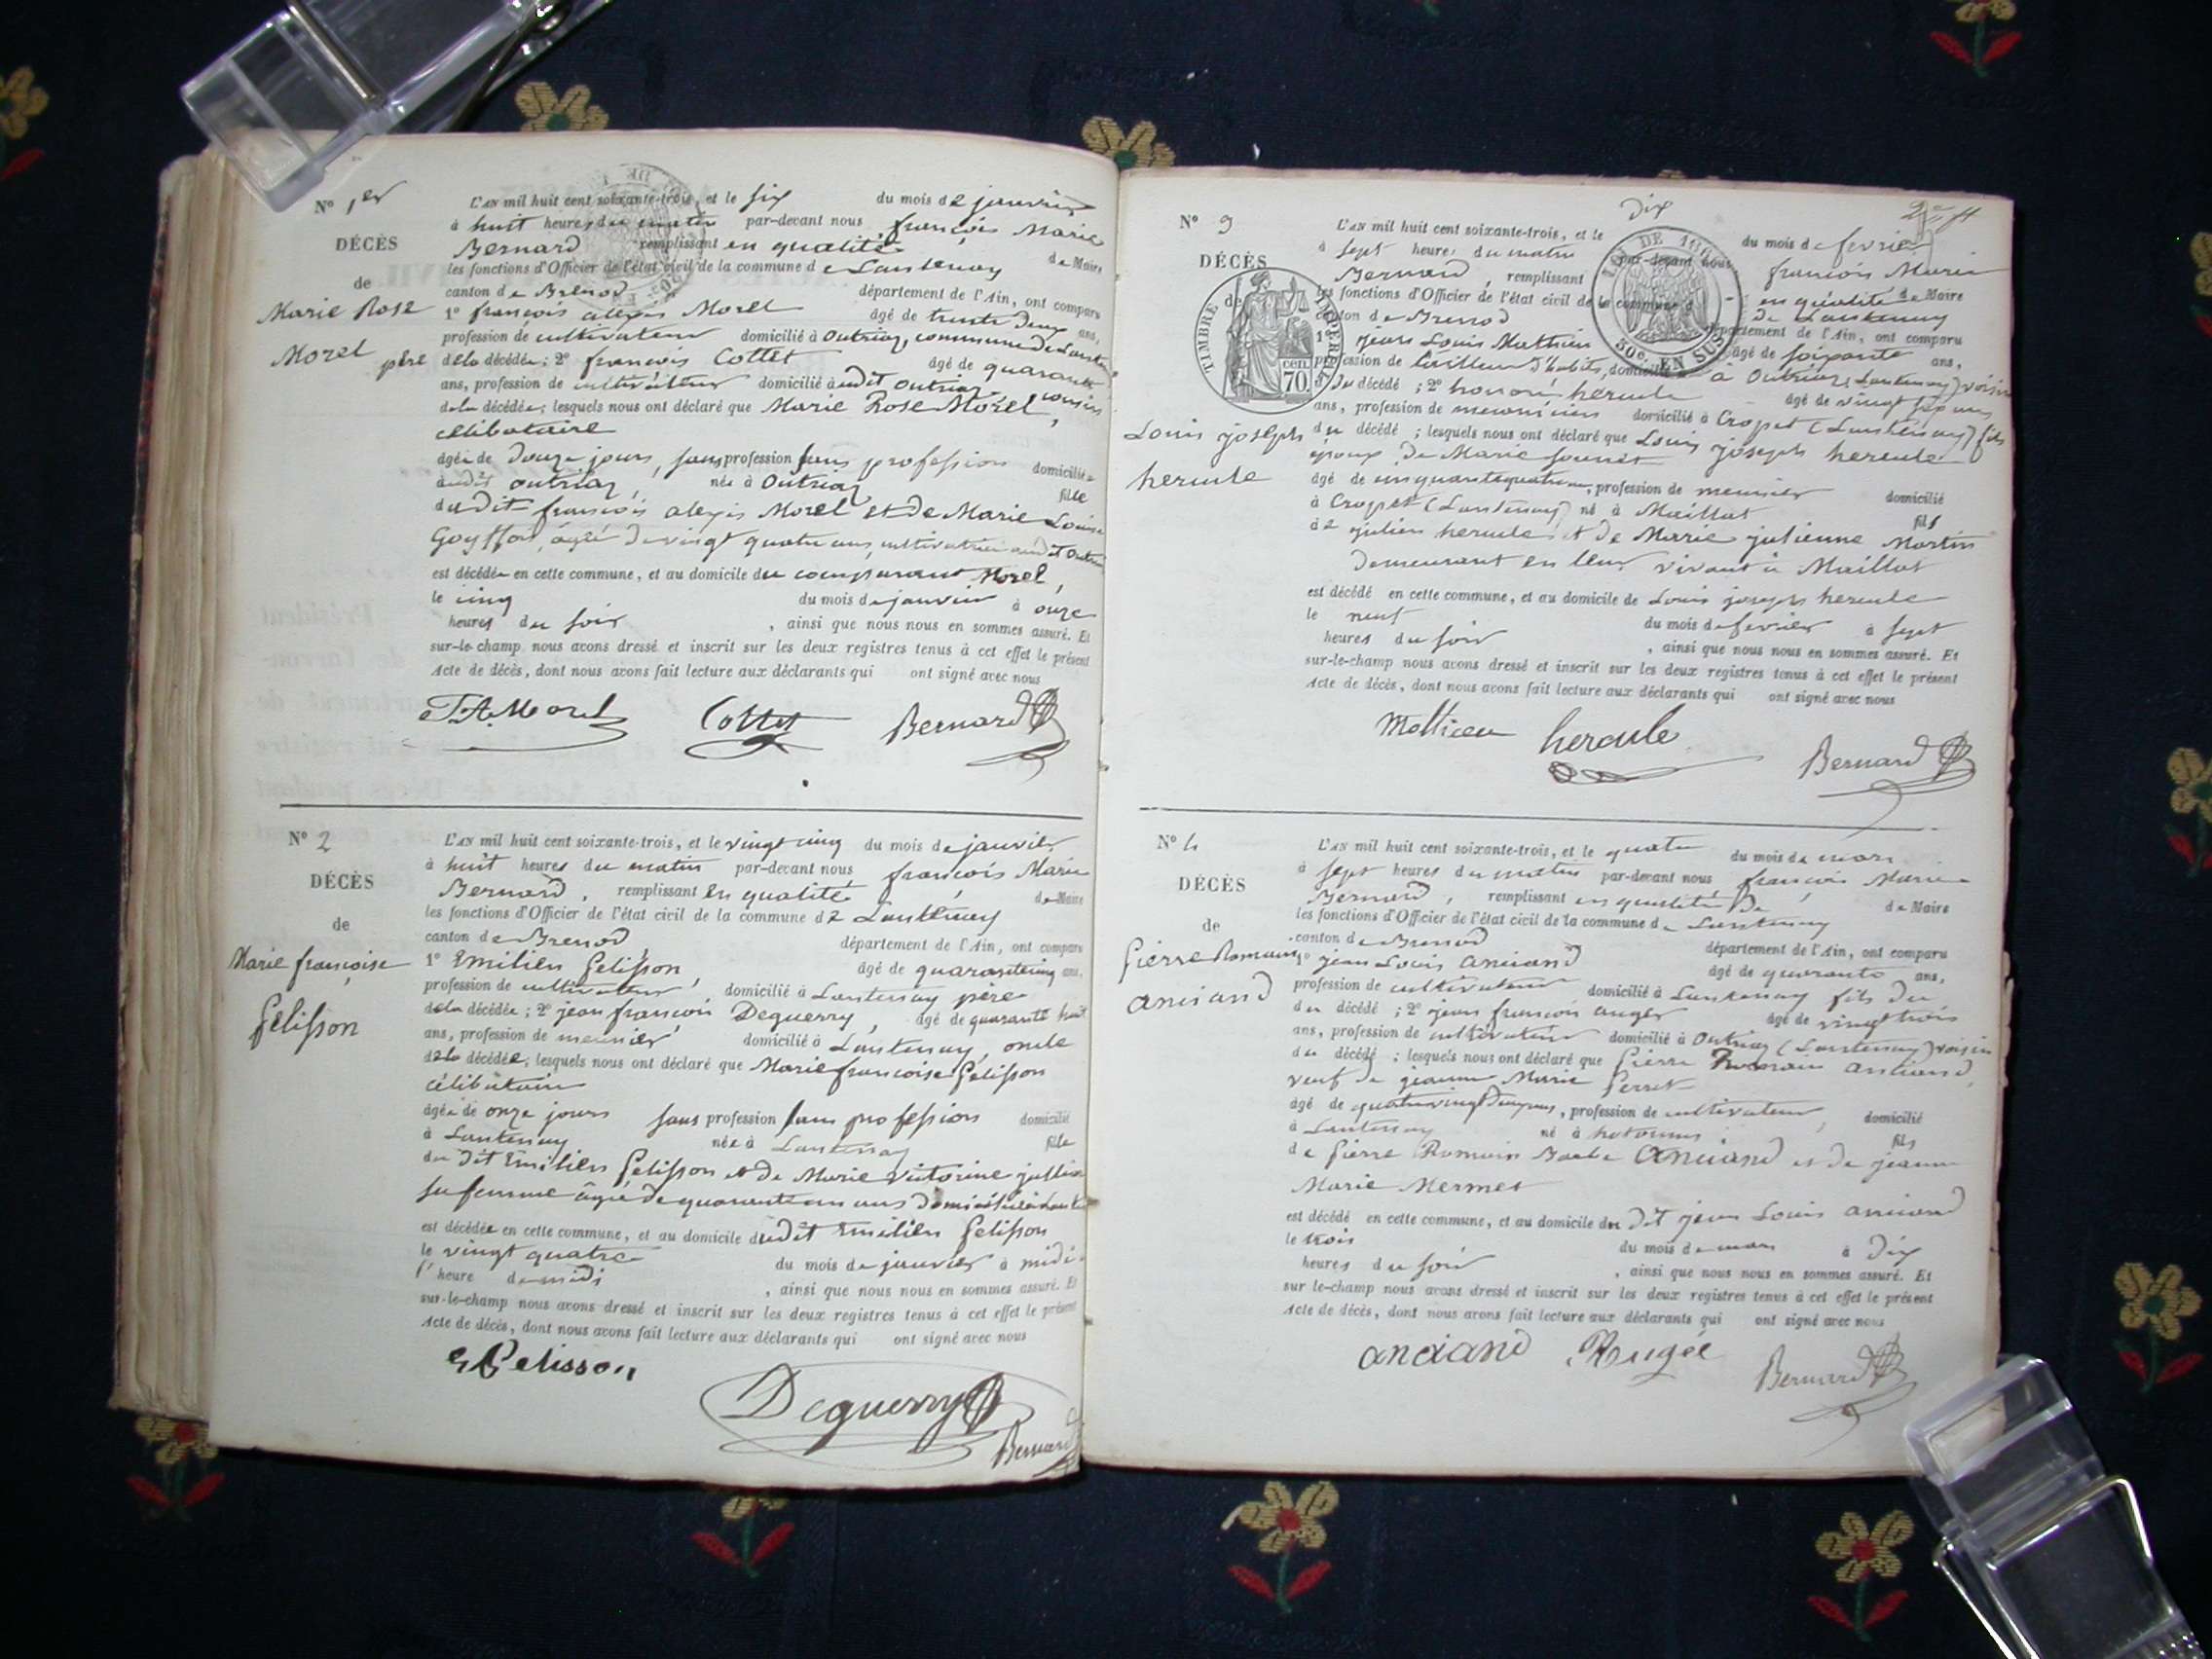 N° 1er
DÉCÈS
de
Marie Rose
Morel
L'AN mil huit cent soixante-trois, et le six du mois de janvier
à huit heures du matin par-devant nous françois Marie
Bernard remplissant en qualité de Maire
les fonctions d'Officier de l'état civil de la commune de Lantenay
canton de Brenod département de l'Ain, ont comparu
1° françois alexis Morel âgé de trente deux ans,
profession de cultivateur domicilié à Outriaz, commune de
père dela décédée ; 2° françois Cottet âgé de quarante
ans, profession de cultivateur domicilié audit outriaz cousin
dela décédée; lesquels nous ont déclaré que Marie Rose Morel,
célibataire
âgée de douze jours, sans profession sans profession domiciliée
audit outriaz, née à Outriaz fille
dudit françois alexis Morel et de Marie Louise
âgée de vingt quatre ans, cultivatrice audit
est décédée en cette commune, et au domicile du comparant Morel,
le cinq du mois de janvier à onze
heures du soir, ainsi que nous nous en sommes assuré. Et
sur-le-champ nous avons dressé et inscrit sur les deux registres tenus à cet effet le présent
Acte de décès, dont nous avons fait lecture aux déclarants qui ont signé avec nous
F.A. Morel Cottet Bernard
N° 2
DÉCÈS
de
Marie françoise
Pelisson
L'AN mil huit cent soixante-trois, et le vingt cinq du mois de janvier
à huit heures du matin par-devant nous françois Marie
Bernard, remplissant en qualité de Maire
les fonctions d'Officier de l'état civil de la commune de Lantenay
canton de Brenod département de l'Ain, ont comparu
1° Emilien Pelisson, âgé de quarantecinq ans,
profession de cultivateur, domicilié à Lantenay père
dela décédée ; 2° jean françois Deguerry, âgé de quarante huit
ans, profession de meunier domicilié à Lantenay, oncle
dela décédée, lesquels nous ont déclaré que Marie françoise Pelisson
célibataire
âgée de onze jours sans profession sans profession domicilié
à Lantenay née à Lantenay fille
du dit Emilien Pelisson et de Marie Victorine
sa femme âgée de quarante un ans
est décédée en cette commune, et au domicile dudit Emilien Pelisson
le vingt quatre du mois de janvier à midi
l'heure de midi, ainsi que nous nous en sommes assuré. Et
sur-le-champ nous avons dressé et inscrit sur les deux registres tenus à cet effet le présent
Acte de décès, dont nous avons fait lecture aux déclarants qui ont signé avec nous
E Pelisson
Deguerry
Bernard
N° 3
DÉCÈS
de
TIMBRE IMPÉRIAL
cen. 70
Louis joseph
hercule
L'AN mil huit cent soixante-trois, et le dix du mois de fevrier
à sept heures du matin par-devant nous françois Marie
Bernard, remplissant en qualité de Maire
les fonctions d'Officier de l'état civil de la commune de Lantenay
50c. EN SUS
canton de Brenod département de l'Ain, ont comparu
1° jean Louis Mathieu âgé de soixante ans,
profession de tailleur d'habits, domicilié à Outriaz (Lantenay) voisin
du décédé ; 2° honoré hercule âgé de vingt
ans, profession de domicilié à Cropet (Lantenay) fils
du décédé ; lesquels nous ont déclaré que Louis joseph hercule
époux de Marie
âgé de cinquantequatre, profession de meunier domicilié
à Cropet (Lantenay) né à Maillat fils
de julien hercule et de Marie julienne Martin
demeurant en leur vivant à Maillat
est décédé en cette commune, et au domicile de Louis joseph hercule
le neuf du mois de fevrier à sept
heures du soir, ainsi que nous nous en sommes assuré. Et
sur-le-champ nous avons dressé et inscrit sur les deux registres tenus à cet effet le présent
Acte de décès, dont nous avons fait lecture aux déclarants qui ont signé avec nous
hercule Bernard
N° 4
DÉCÈS
de
Pierre Romain
anciand
L'AN mil huit cent soixante-trois, et le quatre du mois de mars
à sept heures du matin par-devant nous, françois Marie
Bernard, remplissant en qualité de de Maire
les fonctions d'Officier de l'état civil de la commune de Lantenay
canton de Brenod département de l'Ain, ont comparu
1° jean Louis anciand âgé de quarante ans,
profession de cultivateur domicilié à Lantenay fils du
du décédé ; 2° jean françois auger âgé de vingt trois
ans, profession de cultivateur domicilié à Outriaz (Lantenay) voisin
du décédé ; lesquels nous ont déclaré que Pierre Romain anciand,
veuf de jeanne Marie Perret
âgé de quatrevingt, profession de cultivateur, domicilié
à Lantenay né à hotonnes fils
de Pierre Romain anciand et de jeanne
Marie Mermet
est décédé en cette commune, et au domicile du dit jean Louis anciand
le trois du mois de mars à dix
heures du soir, ainsi que nous nous en sommes assuré. Et
sur le-champ nous avons dressé et inscrit sur les deux registres tenus à cet effet le présent
Acte de décès, dont nous avons fait lecture aux déclarants qui ont signé avec nous
anciand Bernard